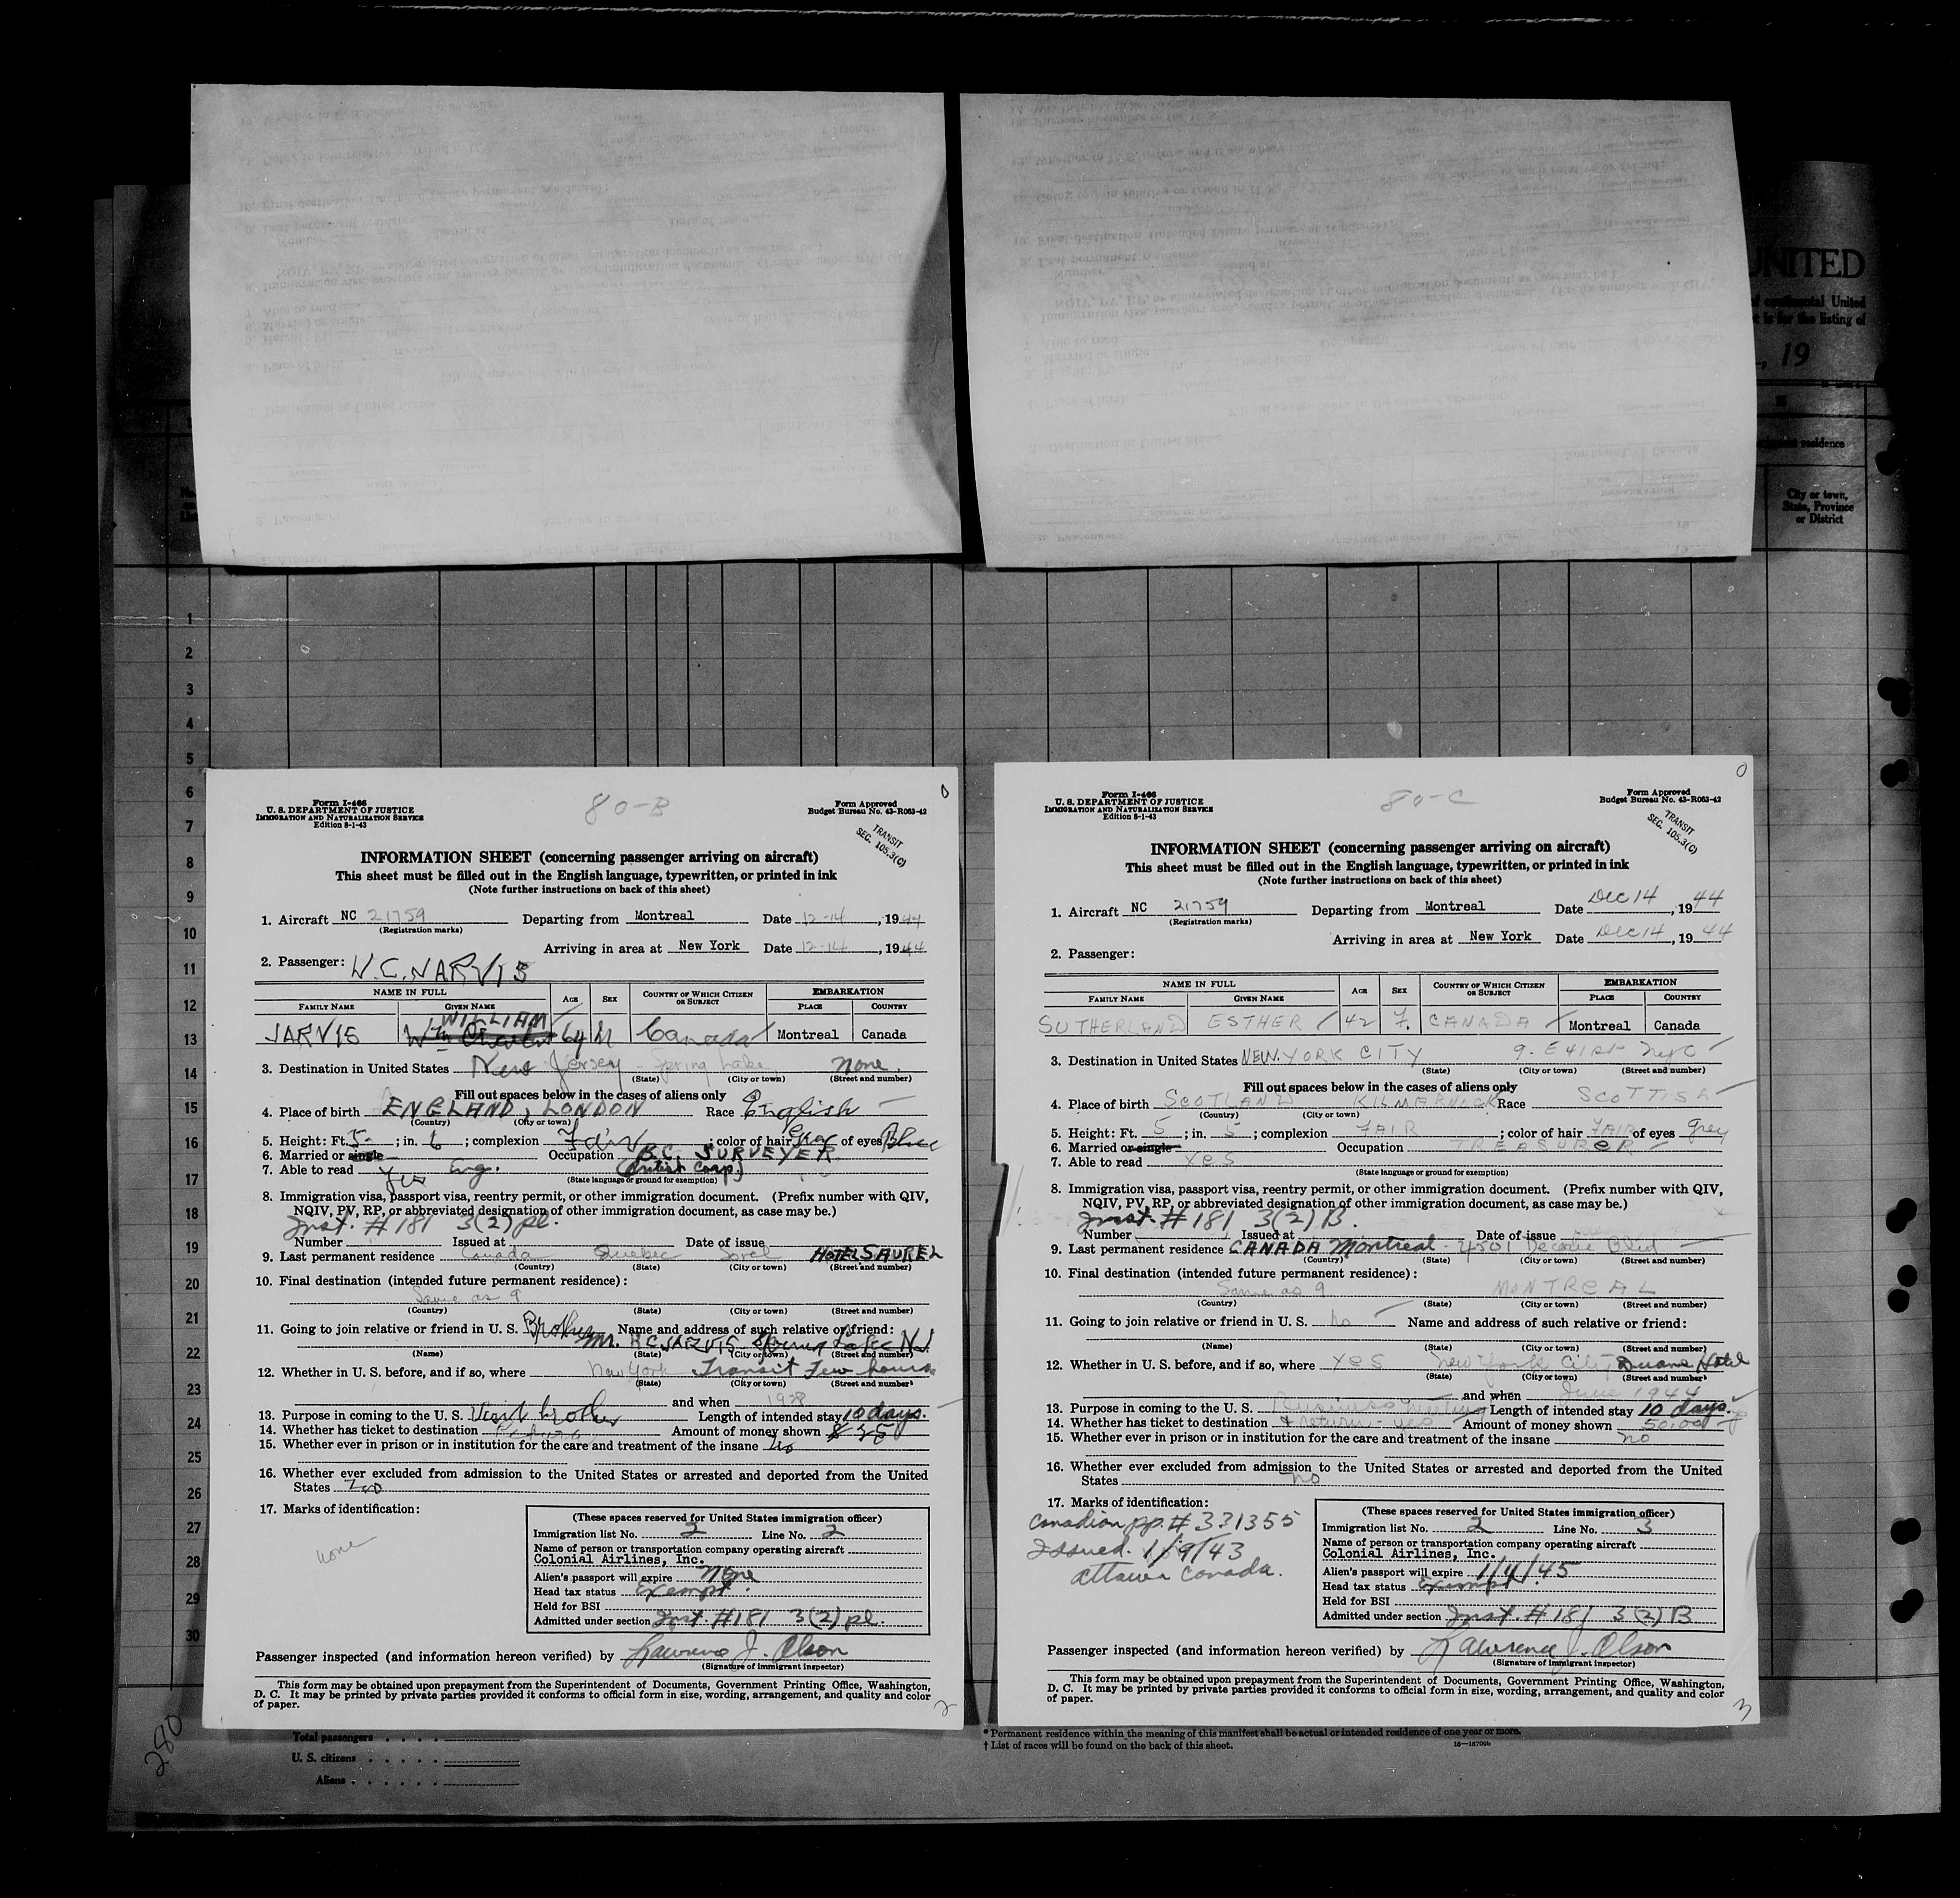 UNITED
of continental United
t is for the listing of
, 19
residence
City or town,
State, Province
or District
1
2
3
4
5
6
7
8
9
10
11
12
13
14
15
16
17
18
19
20
21
22
23
24
25
26
27
28
29
30
0
80-B
Form I-466
U. S. DEPARTMENT OF JUSTICE
IMMIGRATION AND NATURALIZATION SERVICE
Edition 8-1-43
Form Approved
Budget Bureau No. 43-R063-42
TRANSIT
SEC. 105.3(C)
INFORMATION SHEET (concerning passenger arriving on aircraft)
This sheet must be filled out in the English language, typewritten, or printed in ink
(Note further instructions on back of this sheet)
1. Aircraft NC 21759 Departing from Montreal Date 12-14, 1944
(Registration marks)
Arriving in area at New York Date 12-14, 1944
2. Passenger: W.C. JARVIS
NAME IN FULL AGE SEX COUNTRY OF WHICH CITIZEN OR SUBJECT EMBARKATION
FAMILY NAME GIVEN NAME PLACE COUNTRY
WILLIAM
JARVIS Wm 64 M Canada Montreal Canada
3. Destination in United States New Jersey - Spring Lake none.
(State) (City or town) (Street and number)
Fill out spaces below in the cases of aliens only
4. Place of birth ENGLAND, LONDON Race English
(Country) (City or town)
5. Height: Ft. 5 ; in. 6 ; complexion Fair ; color of hair Gray of eyes Blue
6. Married or single Occupation B.C. SURVEYER
7. Able to read Yes Eng. (British Corp.)
(State language or ground for exemption)
8. Immigration visa, passport visa, reentry permit, or other immigration document. (Prefix number with QIV,
NQIV, PV, RP, or abbreviated designation of other immigration document, as case may be.)
Inst. #181 3(2) pl.
Number Issued at Date of issue
9. Last permanent residence Canada Quebec Sorel HOTEL SAUREL
(Country) (State) (City or town) (Street and number)
10. Final destination (intended future permanent residence):
Same as 9
(Country) (State) (City or town) (Street and number)
11. Going to join relative or friend in U. S. Brother Name and address of such relative or friend:
Mr. R C JARVIS - Spring Lake N.J.
(Name) (State) (City or town) (Street and number)
12. Whether in U. S. before, and if so, where New York Transit Few hours
(State) (City or town) (Street and number)
and when 1928
13. Purpose in coming to the U. S. Visit brother Length of intended stay 10 days.
14. Whether has ticket to destination Return Amount of money shown $ 35
15. Whether ever in prison or in institution for the care and treatment of the insane No
16. Whether ever excluded from admission to the United States or arrested and deported from the United
States No
17. Marks of identification:
none
(These spaces reserved for United States immigration officer)
Immigration list No. 2 Line No. 2
Name of person or transportation company operating aircraft
Colonial Airlines, Inc.
Alien's passport will expire None
Head tax status Exempt.
Held for BSI
Admitted under section Inst. #181 3(2) pl.
Passenger inspected (and information hereon verified) by Lawrence J. Olson
(Signature of immigrant inspector)
This form may be obtained upon prepayment from the Superintendent of Documents, Government Printing Office, Washington,
D. C. It may be printed by private parties provided it conforms to official form in size, wording, arrangement, and quality and color
of paper.
2
0
80-C
Form I-466
U. S. DEPARTMENT OF JUSTICE
IMMIGRATION AND NATURALIZATION SERVICE
Edition 8-1-43
Form Approved
Budget Bureau No. 43-R063-42
TRANSIT
SEC. 105.3(C)
INFORMATION SHEET (concerning passenger arriving on aircraft)
This sheet must be filled out in the English language, typewritten, or printed in ink
(Note further instructions on back of this sheet)
1. Aircraft NC 21759 Departing from Montreal Date Dec 14, 1944
(Registration marks)
Arriving in area at New York Date Dec 14, 1944
2. Passenger:
NAME IN FULL AGE SEX COUNTRY OF WHICH CITIZEN OR SUBJECT EMBARKATION
FAMILY NAME GIVEN NAME PLACE COUNTRY
SUTHERLAND ESTHER 42 F. CANADA Montreal Canada
3. Destination in United States NEW YORK CITY 9. E 41 St- NYC
(State) (City or town) (Street and number)
Fill out spaces below in the cases of aliens only
4. Place of birth SCOTLAND KILMARNOCK Race SCOTTISH
(Country) (City or town)
5. Height: Ft. 5 ; in. 5 ; complexion FAIR ; color of hair FAIR of eyes grey
6. Married or single Occupation TREASURER
7. Able to read Yes
(State language or ground for exemption)
8. Immigration visa, passport visa, reentry permit, or other immigration document. (Prefix number with QIV,
NQIV, PV, RP, or abbreviated designation of other immigration document, as case may be.)
Inst. #181 3(2) B.
Number Issued at Date of issue
9. Last permanent residence CANADA Montreal - 4501 Decarie Blvd
(Country) (State) (City or town) (Street and number)
10. Final destination (intended future permanent residence):
Same as 9 MONTREAL
(Country) (State) (City or town) (Street and number)
11. Going to join relative or friend in U. S. No Name and address of such relative or friend:
(Name) (State) (City or town) (Street and number)
12. Whether in U. S. before, and if so, where Yes New York City Duane Hotel
(State) (City or town) (Street and number)
and when June 1944
13. Purpose in coming to the U. S. Business meeting Length of intended stay 10 days.
14. Whether has ticket to destination & return - yes Amount of money shown 50.00
15. Whether ever in prison or in institution for the care and treatment of the insane no
16. Whether ever excluded from admission to the United States or arrested and deported from the United
States no
17. Marks of identification:
Canadian pp. # 331355
Issued. 1/9/43
Ottawa Canada.
(These spaces reserved for United States immigration officer)
Immigration list No. 2 Line No. 3
Name of person or transportation company operating aircraft
Colonial Airlines, Inc.
Alien's passport will expire 1/4/45
Head tax status Exempt.
Held for BSI
Admitted under section Inst. #181 3(2) B
Passenger inspected (and information hereon verified) by Lawrence J. Olson
(Signature of immigrant inspector)
This form may be obtained upon prepayment from the Superintendent of Documents, Government Printing Office, Washington,
D. C. It may be printed by private parties provided it conforms to official form in size, wording, arrangement, and quality and color
of paper.
3
280
Total passengers
U. S. citizens
Aliens
* Permanent residence within the meaning of this manifest shall be actual or intended residence of one year or more.
† List of races will be found on the back of this sheet.